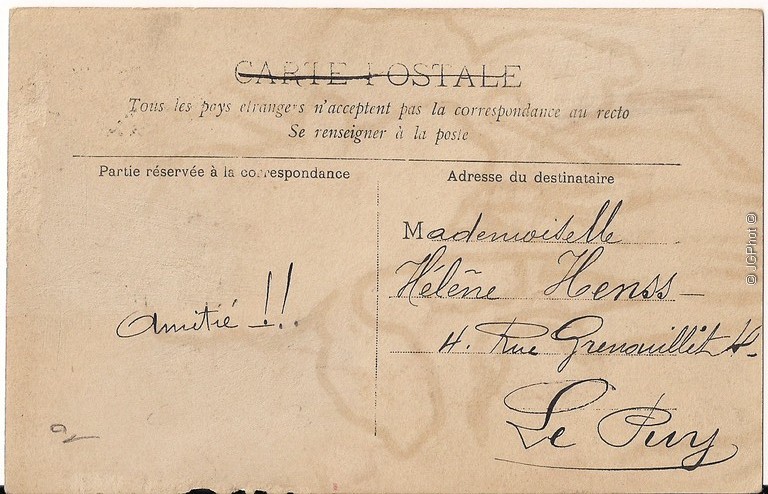 CARTE POSTALE
Tous les pays étrangers n'acceptent pas la correspondance au recto
Se renseigner à la poste
Partie réservée à la correspondance
Adresse du destinataire
Mademoiselle
Hélène Henss
Amitié !!!
4. Rue Grenouillit 4.
Le Puy
© JGPhot ©